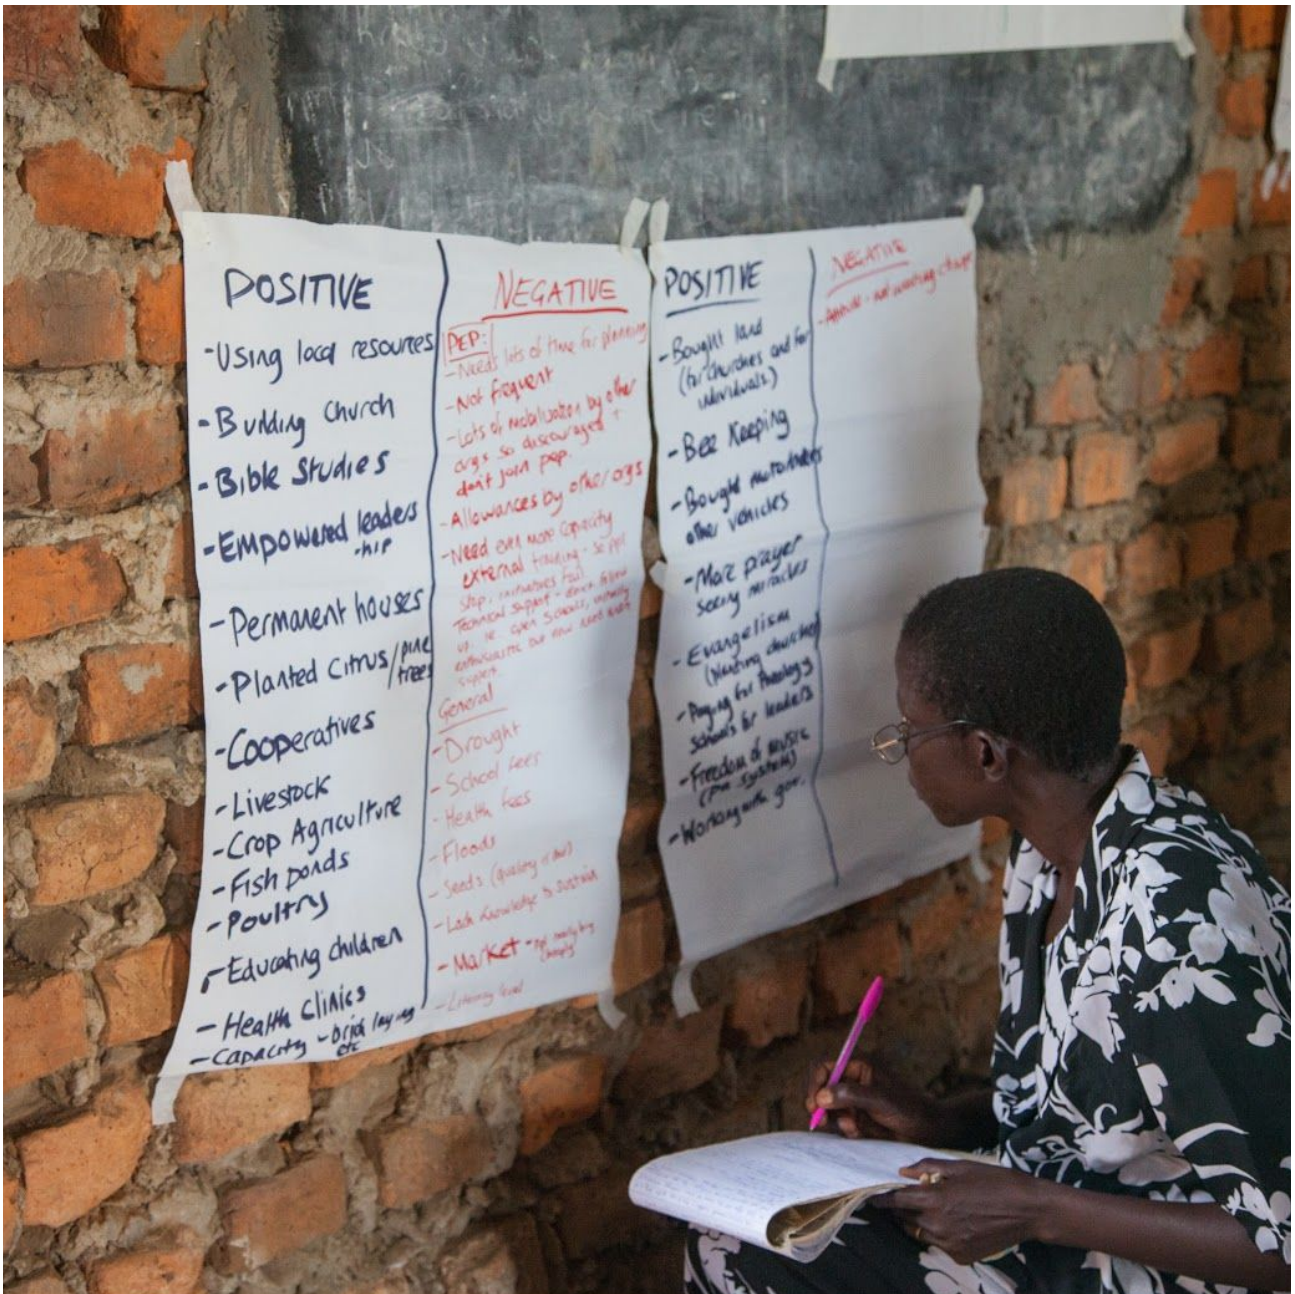 POSITIVE
- Using local resources
- Building Church
- Bible Studies
- Empowered leaders
-hip
- Permanent houses
- Planted citrus/pine
trees
- Cooperatives
- Livestock
- Crop Agriculture
- Fish ponds
- Poultry
- Educating children
- Health Clinics
- Capacity - brick laying
etc
NEGATIVE
PEP:
- Needs lots of time for planning
- Not frequent
- Lots of mobilisation by other
orgs so discouraged +
don't join pep.
- Allowances by other orgs
- Need even more capacity
external training - so ppl
stop, initiatives fail
Technical support - don't follow
up
ie. open schools, initially
enthusiastic but now need
support
General
- Drought
- School fees
- Health fees
- Floods
- Seeds (quality of)
- Lack knowledge to sustain
- Market -
- Literacy level
POSITIVE
- Bought land
(for churches and for
individuals)
- Bee Keeping
- Bought motorbikes
other vehicles
- More prayer
seeing miracles
- Evangelism
(planting churches)
- Paying for Theology
schools for leaders
- Freedom of music
(PA system)
- Working with gov.
NEGATIVE
- Attitude - not wanting change